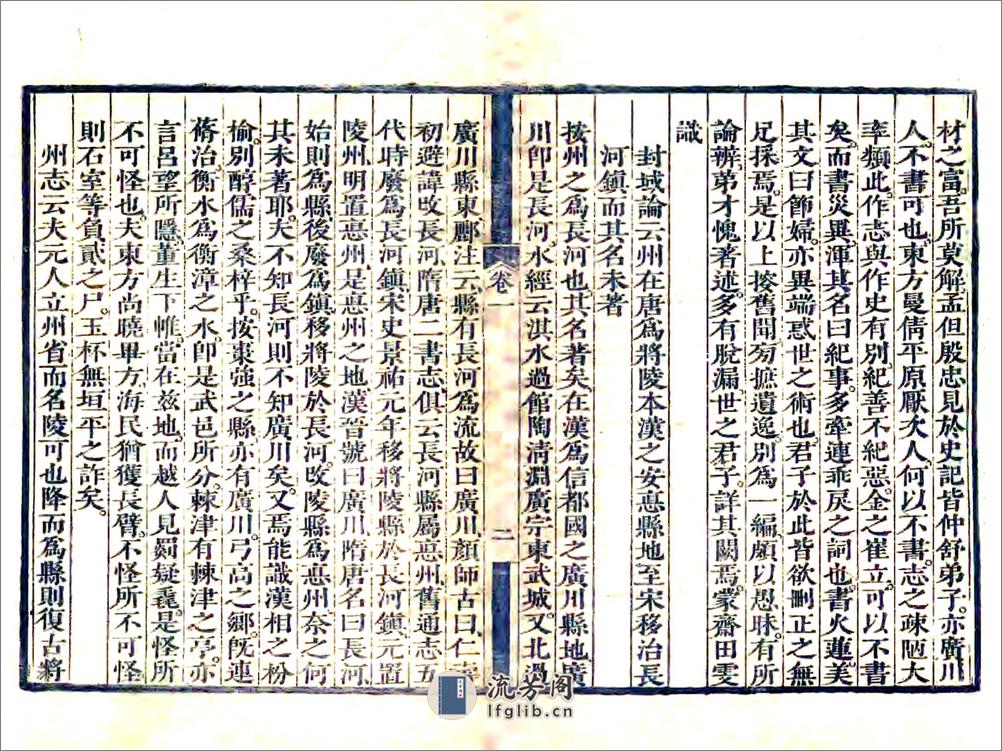 材之富吾所莫解孟但殷忠見於史記皆仲舒弟子亦廣川
人不書可也東方曼倩平原厭次人何以不書志之疎陋大
率類此作志與作史有別紀善不紀惡金之崔立可以不書
矣而書災異渾其名曰紀事多牽連乖戾之詞也書火蓮美
其文曰節婦亦異端惑世之術也君子於此皆欲刪正之無
足採焉是以上搜舊聞旁摭遺逸別為一編頗以愚昧有所
論辨弟才愧著述多有脫漏世之君子詳其闕焉蒙齋田雯
識
封域論云州在唐為將陵本漢之安惪縣地至宋移治長
河鎮而其名未著
按州之為長河也其名著矣在漢為信都國之廣川縣地廣
川即是長河水經云淇水過館陶淸淵廣宗東武城又北過
卷一
二
廣川縣東酈注云縣有長河為流故曰廣川顏師古曰仁壽
初避諱改長河隋唐二書志俱云長河縣屬惪州舊通志五
代時廢為長河鎮宋史景祐元年移將陵縣於長河鎮元置
陵州明置惪州是惪州之地漢晉號曰廣川隋唐名曰長河
始則為縣後廢為鎮移將陵於長河改陵縣為惪州奈之何
其未著耶夫不知長河則不知廣川矣又焉能識漢相之枌
榆別醇儒之桑梓乎按棗強之縣亦有廣川弓高之鄉旣連
蓨治衡水為衡漳之水即是武邑所分棘津有棘津之亭亦
言呂望所隱董生下帷當在茲地而越人見罽疑毳是怪所
不可怪也夫東方尚曉畢方海民猶獲長臂不怪所不可怪
則石室等負貳之尸玉杯無垣平之詐矣
州志云夫元人立州省而名陵可也降而為縣則復古將
流芳阁
lfglib.cn